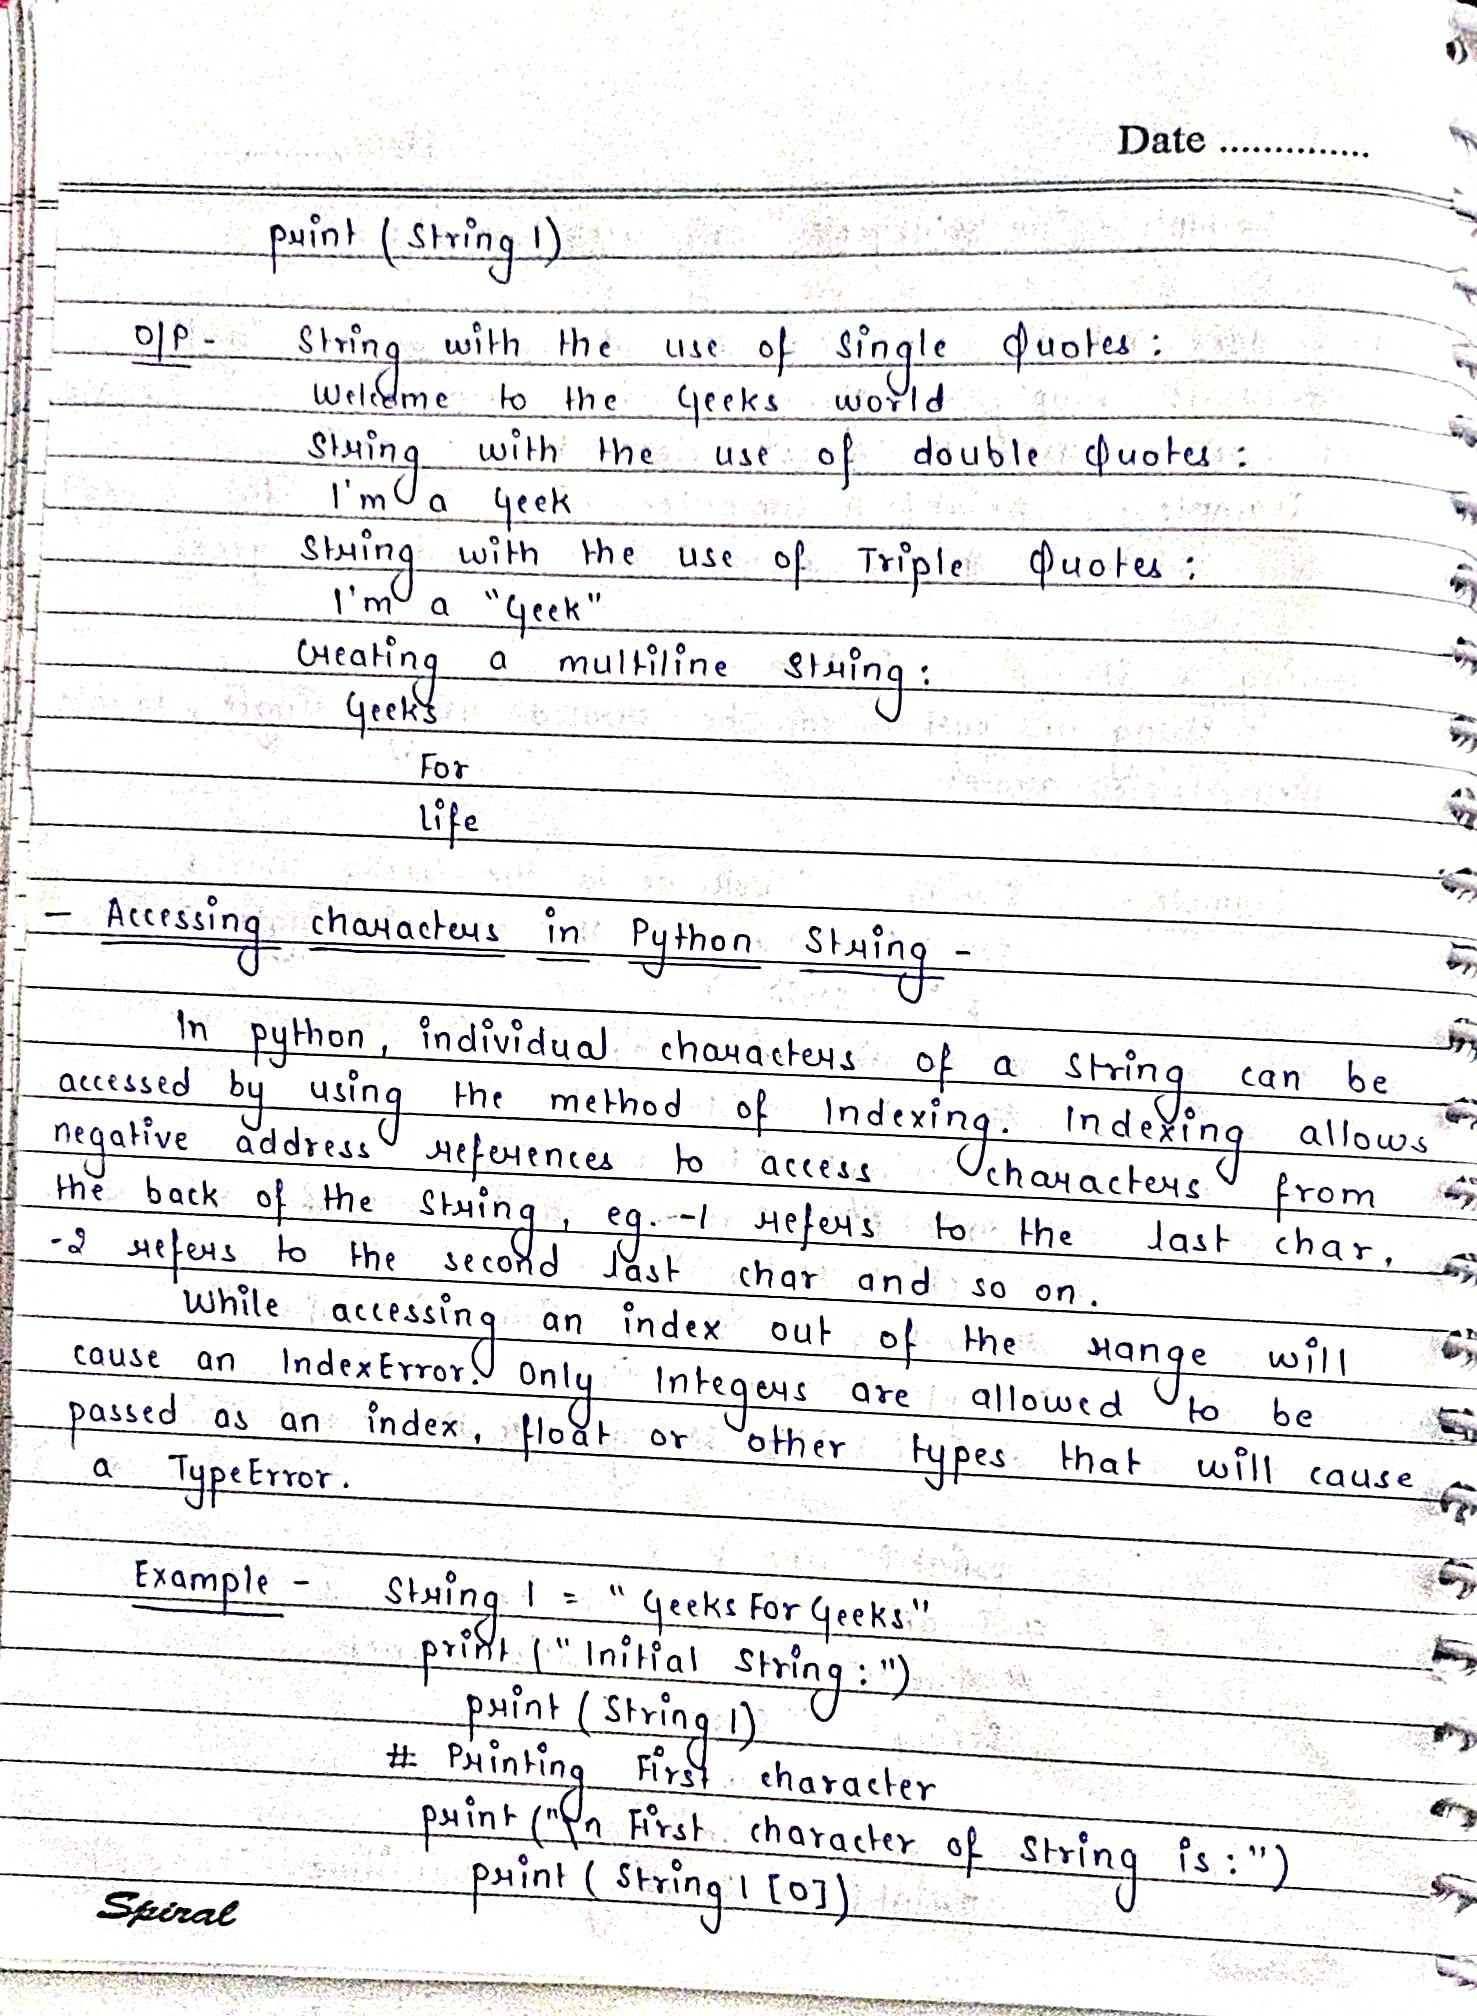 Date ..............
print (String 1)
O/P - String with the use of Single Quotes :
Welcome to the Geeks world
String with the use of double Quotes :
I'm a Geek
String with the use of Triple Quotes :
I'm a "Geek"
Creating a multiline String :
Geeks
For
life
- Accessing characters in Python String -
In python, individual characters of a string can be
accessed by using the method of Indexing. Indexing allows
negative address references to access characters from
the back of the String, eg. -1 refers to the last char,
-2 refers to the second last char and so on.
While accessing an index out of the range will
cause an IndexError. Only Integers are allowed to be
passed as an index, float or other types that will cause
a TypeError.
Example - String 1 = "Geeks For Geeks"
print ("Initial String :")
print (String 1)
# Printing First character
print ("\n First character of String is :")
print (String 1 [0])
Spiral